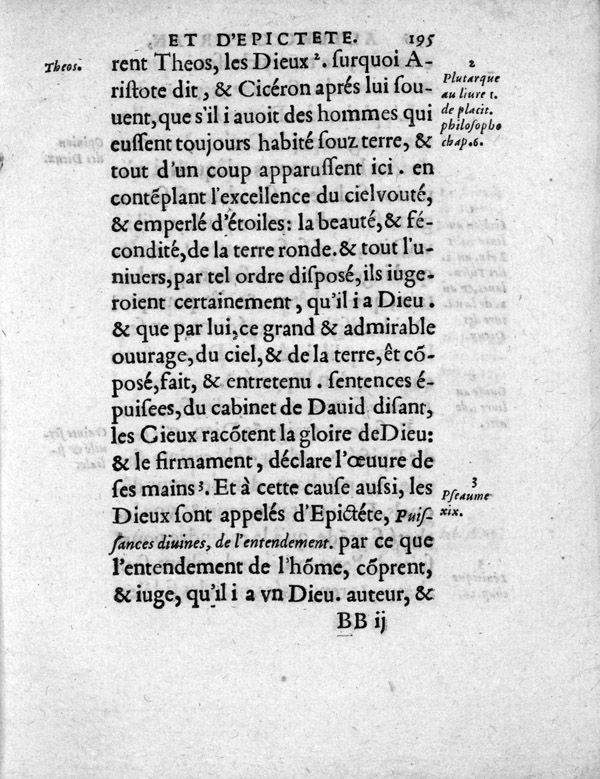 ET D'EPICTETE. 195
Theos.
rent Theos, les Dieux ². surquoi A-
ristote dit, & Cicéron aprés lui sou-
uent, que s'il i auoit des hommes qui
eussent toujours habité souz terre, &
tout d'un coup apparussent ici. en
contẽplant l'excellence du cielvouté,
& emperlé d'étoiles: la beauté, & fé-
condité, de la terre ronde. & tout l'u-
niuers, par tel ordre disposé, ils iuge-
roient certainement, qu'il i a Dieu.
& que par lui, ce grand & admirable
ouurage, du ciel, & de la terre, êt cõ-
posé, fait, & entretenu. sentences é-
puisees, du cabinet de Dauid disant,
les Cieux racõtent la gloire deDieu:
& le firmament, déclare l'œuure de
ses mains ³. Et à cette cause aussi, les
Dieux sont appelés d'Epictéte, Puis-
sances diuines, de l'entendement. par ce que
l'entendement de l'hõme, cõprent,
& iuge, qu'il i a vn Dieu. auteur, &
BB ij
2
Plutarque
au liure 1.
de placit.
philosopho
chap. 6.
3
Pseaume
xix.